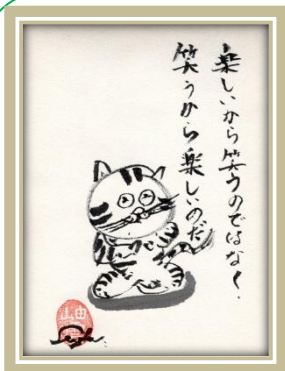 楽しいから笑うのではなく、
笑うから楽しいのだ